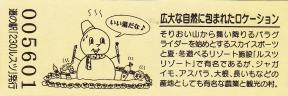 005601
道の駅「230ルスツ」発行
いい湯だな♪
広大な自然に包まれたロケーション
そりおい山から舞い降りるパラグ
ライダーを始めとするスカイスポーツ
と夏・冬遊べるリゾート施設「ルスツ
リゾート」で有名であるが、ジャガ
イモ、アスパラ、大根、長いもなどの
産地としても有名な農業と観光の村。